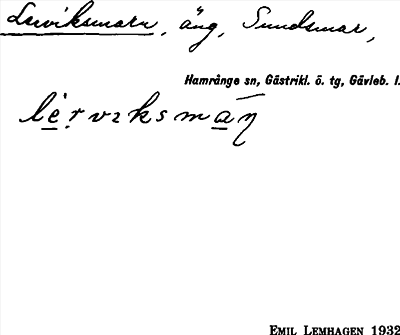 Lerviksmarn, äng, Sundsmar,
Hamrånge sn, Gästrikl. ö. tg, Gävleb. l.
lervıksmaŋ
EMIL LEMHAGEN 1932